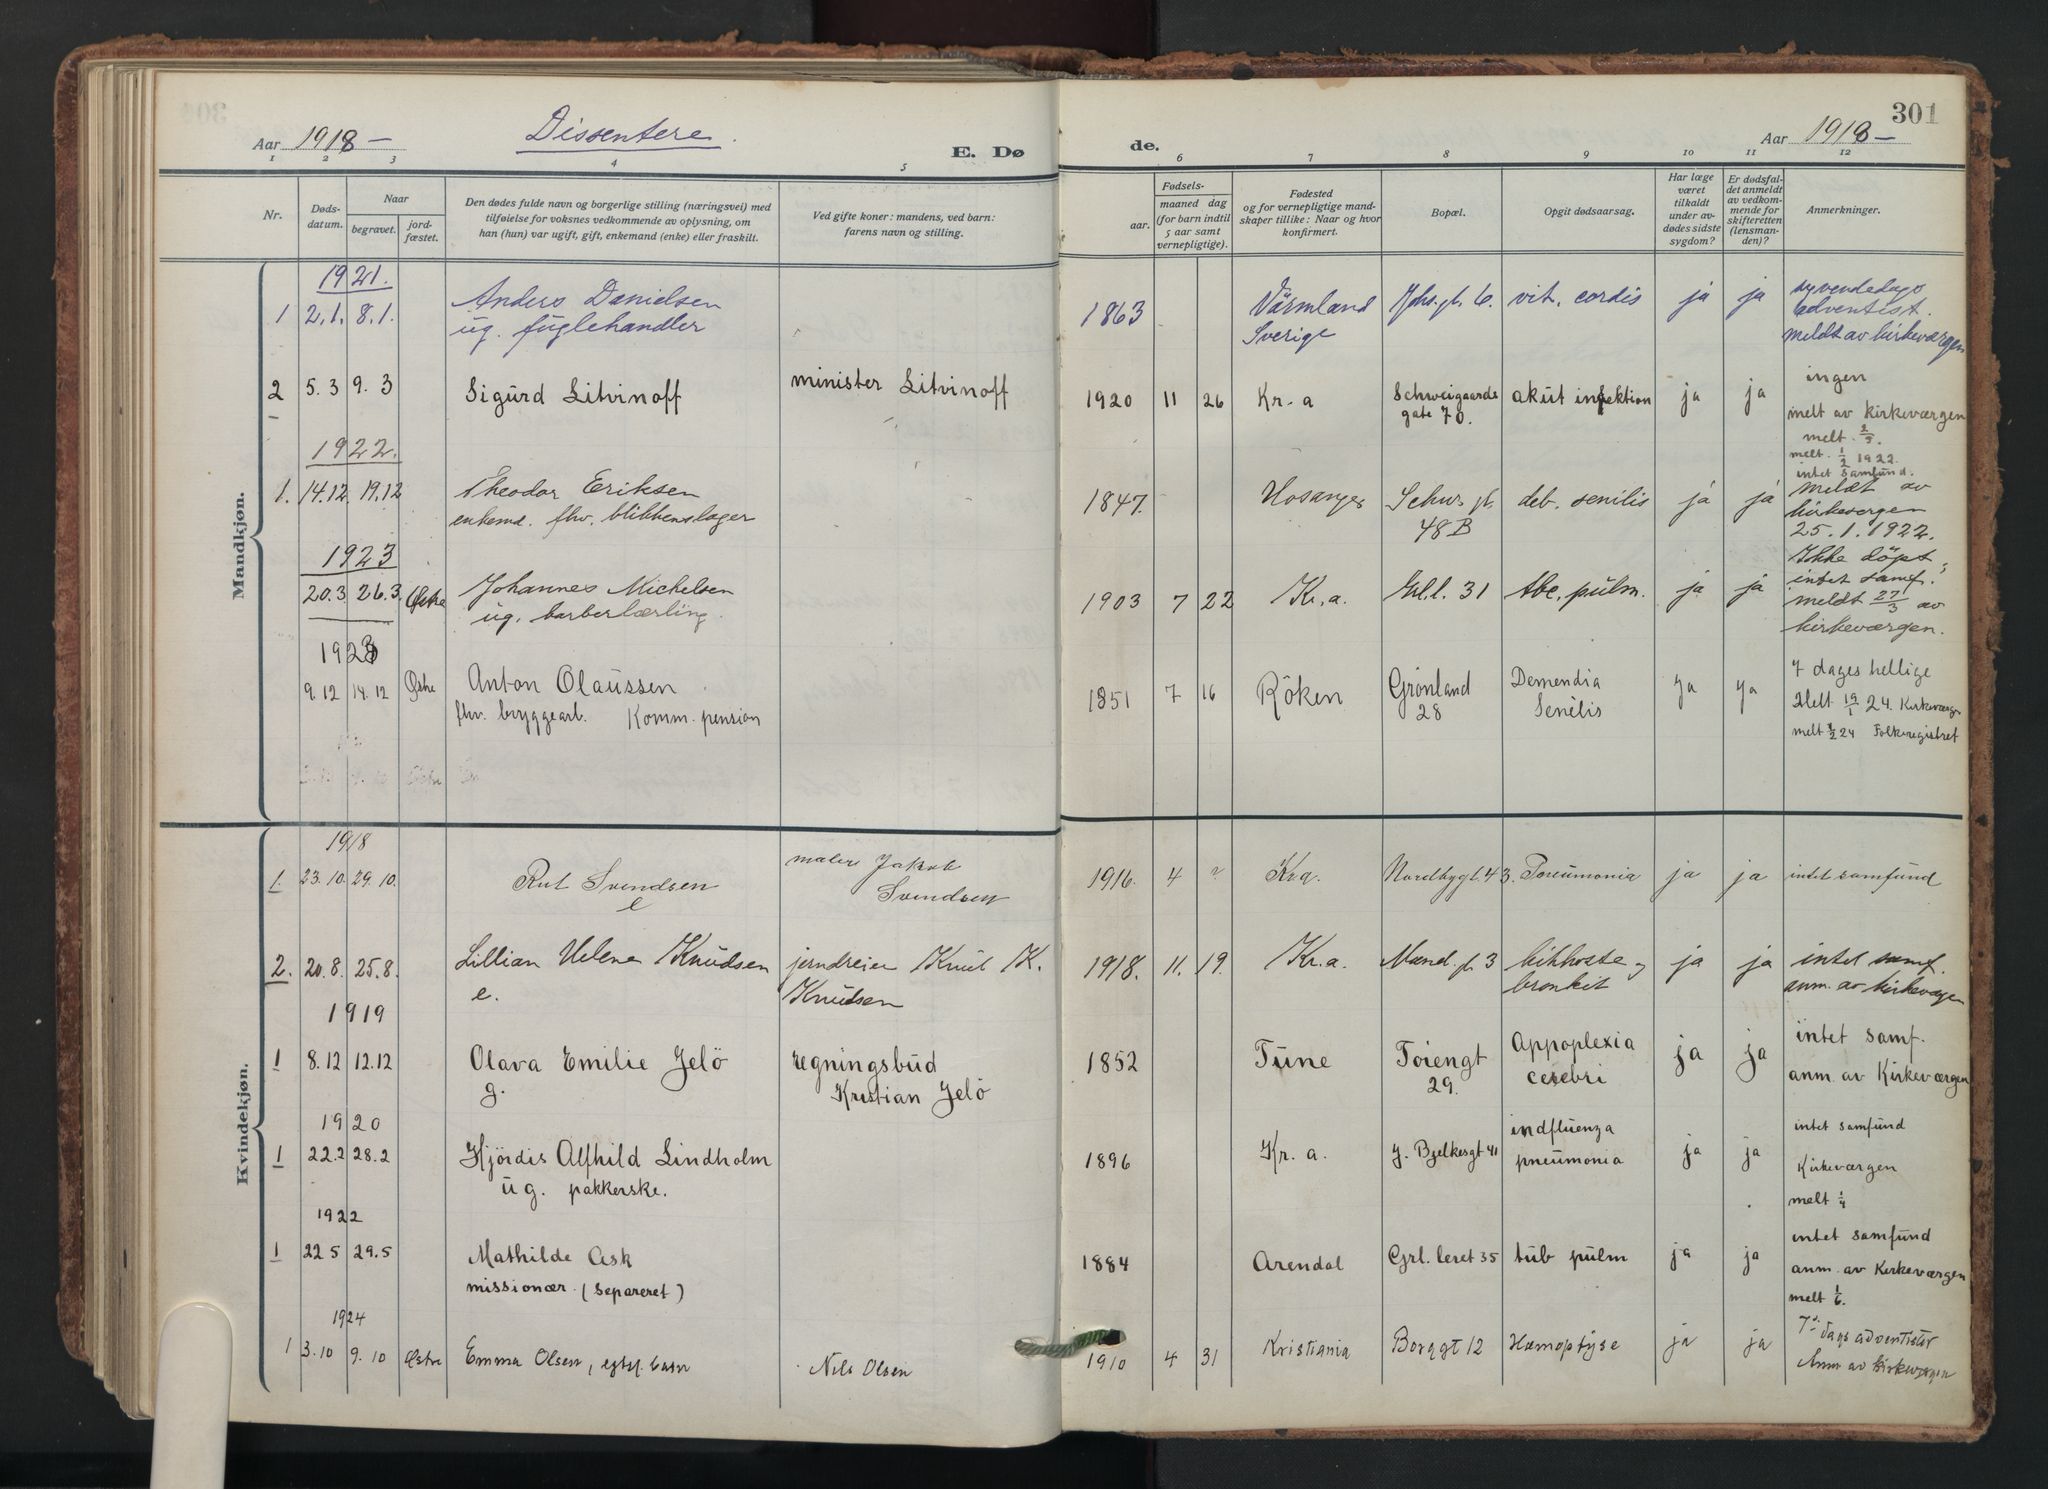 301
Aar 1918 –
Dissentere.
E. Dø
de.
Aar 1918 –
1 2 3 4 5 6 7 8 9 10 11 12
Nr.
Døds-
datum.
Naar
begravet.
jord-
fæstet.
Den dødes fulde navn og borgerlige stilling (næringsvei) med
tilføielse for voksnes vedkommende av oplysning, om
han (hun) var ugift, gift, enkemand (enke) eller fraskilt.
Ved gifte koner: mandens, ved barn:
farens navn og stilling.
Fødsels-
aar.
maaned dag
(for barn indtil
5 aar samt
vernepligtige).
Fødested
og for vernepligtige mand-
skaper tillike: Naar og hvor
konfirmert.
Bopæl.
Opgit dødsaarsag.
Har læge
været
tilkaldt
under av-
dødes sidste
sygdom?
Er dødsfal-
det anmeldt
av vedkom-
mende for
skifteretten
(lensman-
den)?
Anmerkninger.
Mandkjøn.
1921.
1 2.1. 8.1. Anders Danielsen
ug. fuglehandler
1863 Värmland
Sverige
gt. 6. vit. cordis ja ja syvendedags
adventist.
meldt av kirkeværgen
2 5.3 9.3 Sigurd Litvinoff minister Litvinoff
1920 11 26 Kr.a Schweigaards
gate 70.
akut infektion ja ja ingen
melt av Kirkeværgen
melt 2/3.
1922.
1. 14.12. 19.12 Theodor Eriksen
enkemd. fhv. blikkenslager
1847. Hosanger Schws. gt.
48 B
deb. senilis ja ja melt. 1/2 1922.
intet samfund.
meldt av
kirkevergen
25.1.1922.
1923
20.3 26.3. Østre Johannes Michelsen
ug. barberlærling.
1903 7 22 Kr.a. Grl.l. 31 tbc. pulm. ja ja Ikke döpt,
intet samf.
meldt 27/3 av
kirkeværgen.
1923
9.12 14.12 Østre Anton Olaussen
fhv. bryggearb. Komm. pension
1851 7 16 Röken Grönland
28
Demendia
Senilis
ja ja 7 dages hellige
Melt 19/1 24. Kirkeværge
melt 4/2 24 Folkeregistret
Kvindekjøn.
1918
1. 23.10. 29.10. Rut Svendsen
e
maler Jakob
Svendsen
1916. 4 ? Kr.a. Nordbygt. 43. Pneumonia ja ja intet samfund
2. 20.8. 25.8. Lillian Helene Knudsen
e.
jerndreier Knut K.
Knutsen
1918. 11. 19. Kr.a. Mand. gt. 3 kikhoste og
bronkit
ja ja intet samf.
anm. av kirkeværgen
1919
1 8.12 12.12 Olava Emilie Jelö
g.
regningsbud
Kristian Jelö
1852 Tune Töiengt
29.
Appoplexia
cerebri
ja ja intet samf.
anm. av Kirkeværgen
1920
1 22.2 28.2 Hjördis Alfhild Lindholm
ug. pakkerske.
1896 Kr.a. J. Bjelkesgt 41 indfluenza
pneumonia
ja ja intet samfund
Kirkeværgen
melt 1/4
1922
1 22.5 29.5 Mathilde Ask
missionær. (separeret)
1884 Arendal Grl. leret 35 tub pulm ja ja intet samfund
anm. av Kirkeværgen
melt 1/6.
1924
1 3.10 9.10 Østre Emma Olsen, egtef. barn Nils Olsen
1910 4 31 Kristiania Borggt 12 Hæmoptyse ja ja 7de dags adventister
Anm av kirkeværgen